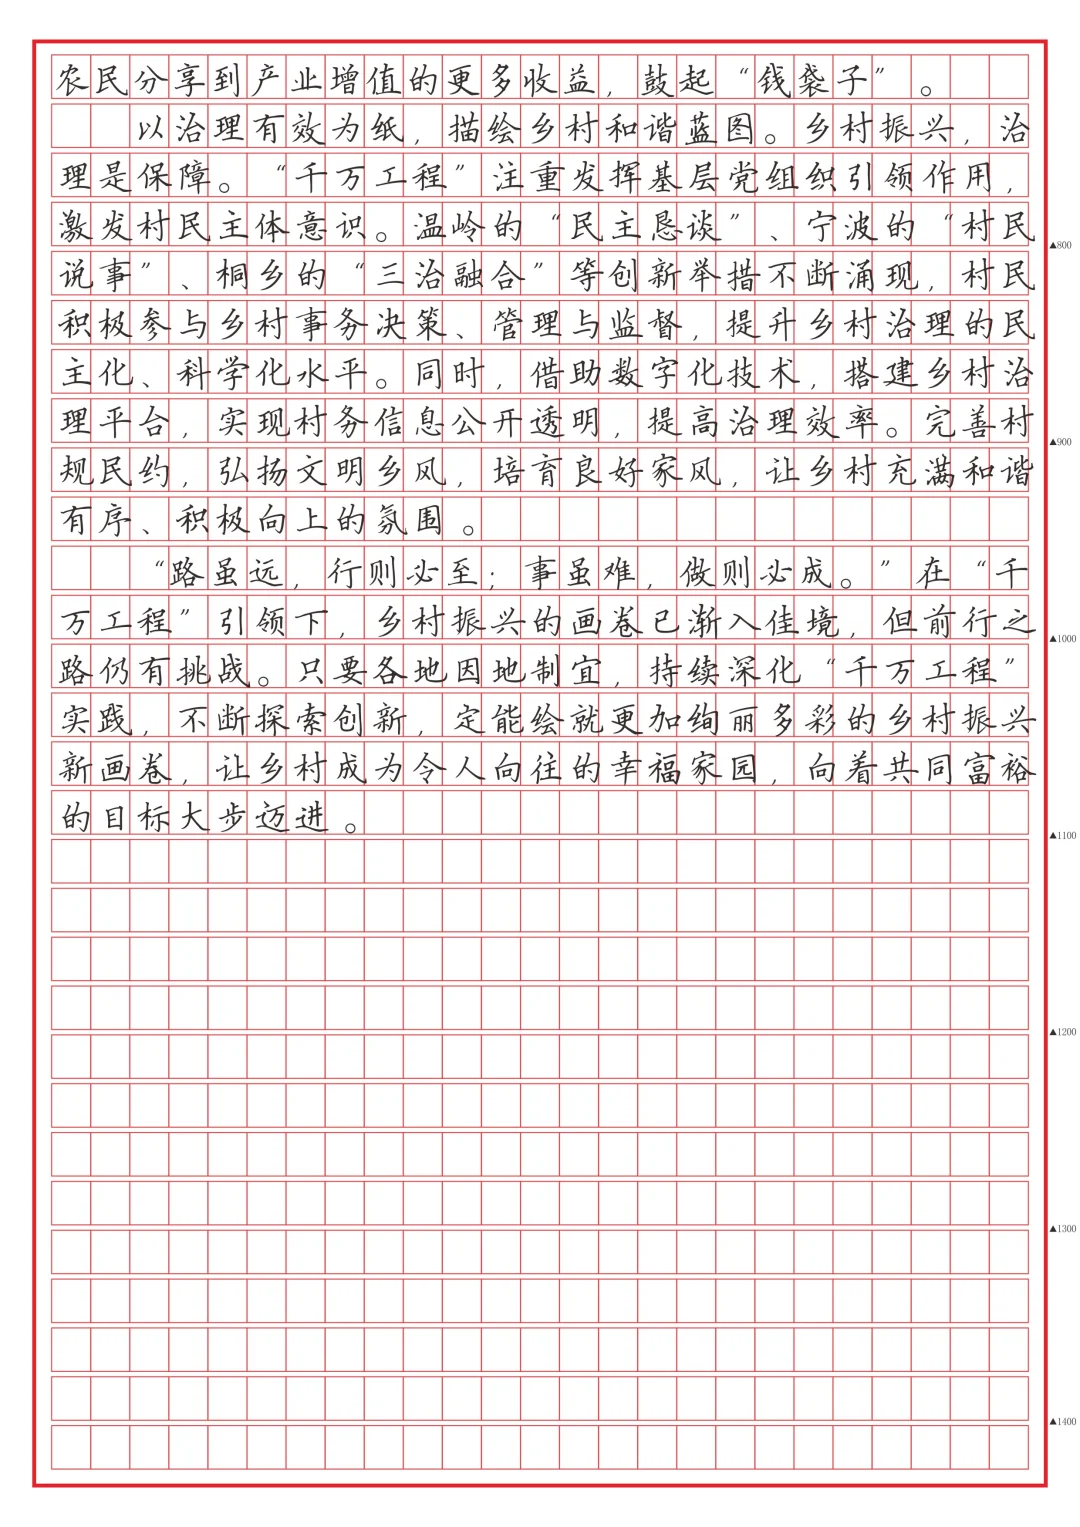 农民分享到产业增值的更多收益，鼓起“钱袋子”。
以治理有效为纸，描绘乡村和谐蓝图。乡村振兴，治
理是保障。“千万工程”注重发挥基层党组织引领作用，
激发村民主体意识。温岭的“民主恳谈”、宁波的“村民
▲800
说事”、桐乡的“三治融合”等创新举措不断涌现，村民
积极参与乡村事务决策、管理与监督，提升乡村治理的民
主化、科学化水平。同时，借助数字化技术，搭建乡村治
理平台，实现村务信息公开透明，提高治理效率。完善村
▲900
规民约，弘扬文明乡风，培育良好家风，让乡村充满和谐
有序、积极向上的氛围。
“路虽远，行则必至；事虽难，做则必成。”在“千
万工程”引领下，乡村振兴的画卷已渐入佳境，但前行之
▲1000
路仍有挑战。只要各地因地制宜，持续深化“千万工程”
实践，不断探索创新，定能绘就更加绚丽多彩的乡村振兴
新画卷，让乡村成为令人向往的幸福家园，向着共同富裕
的目标大步迈进。
▲1100
▲1200
▲1300
▲1400